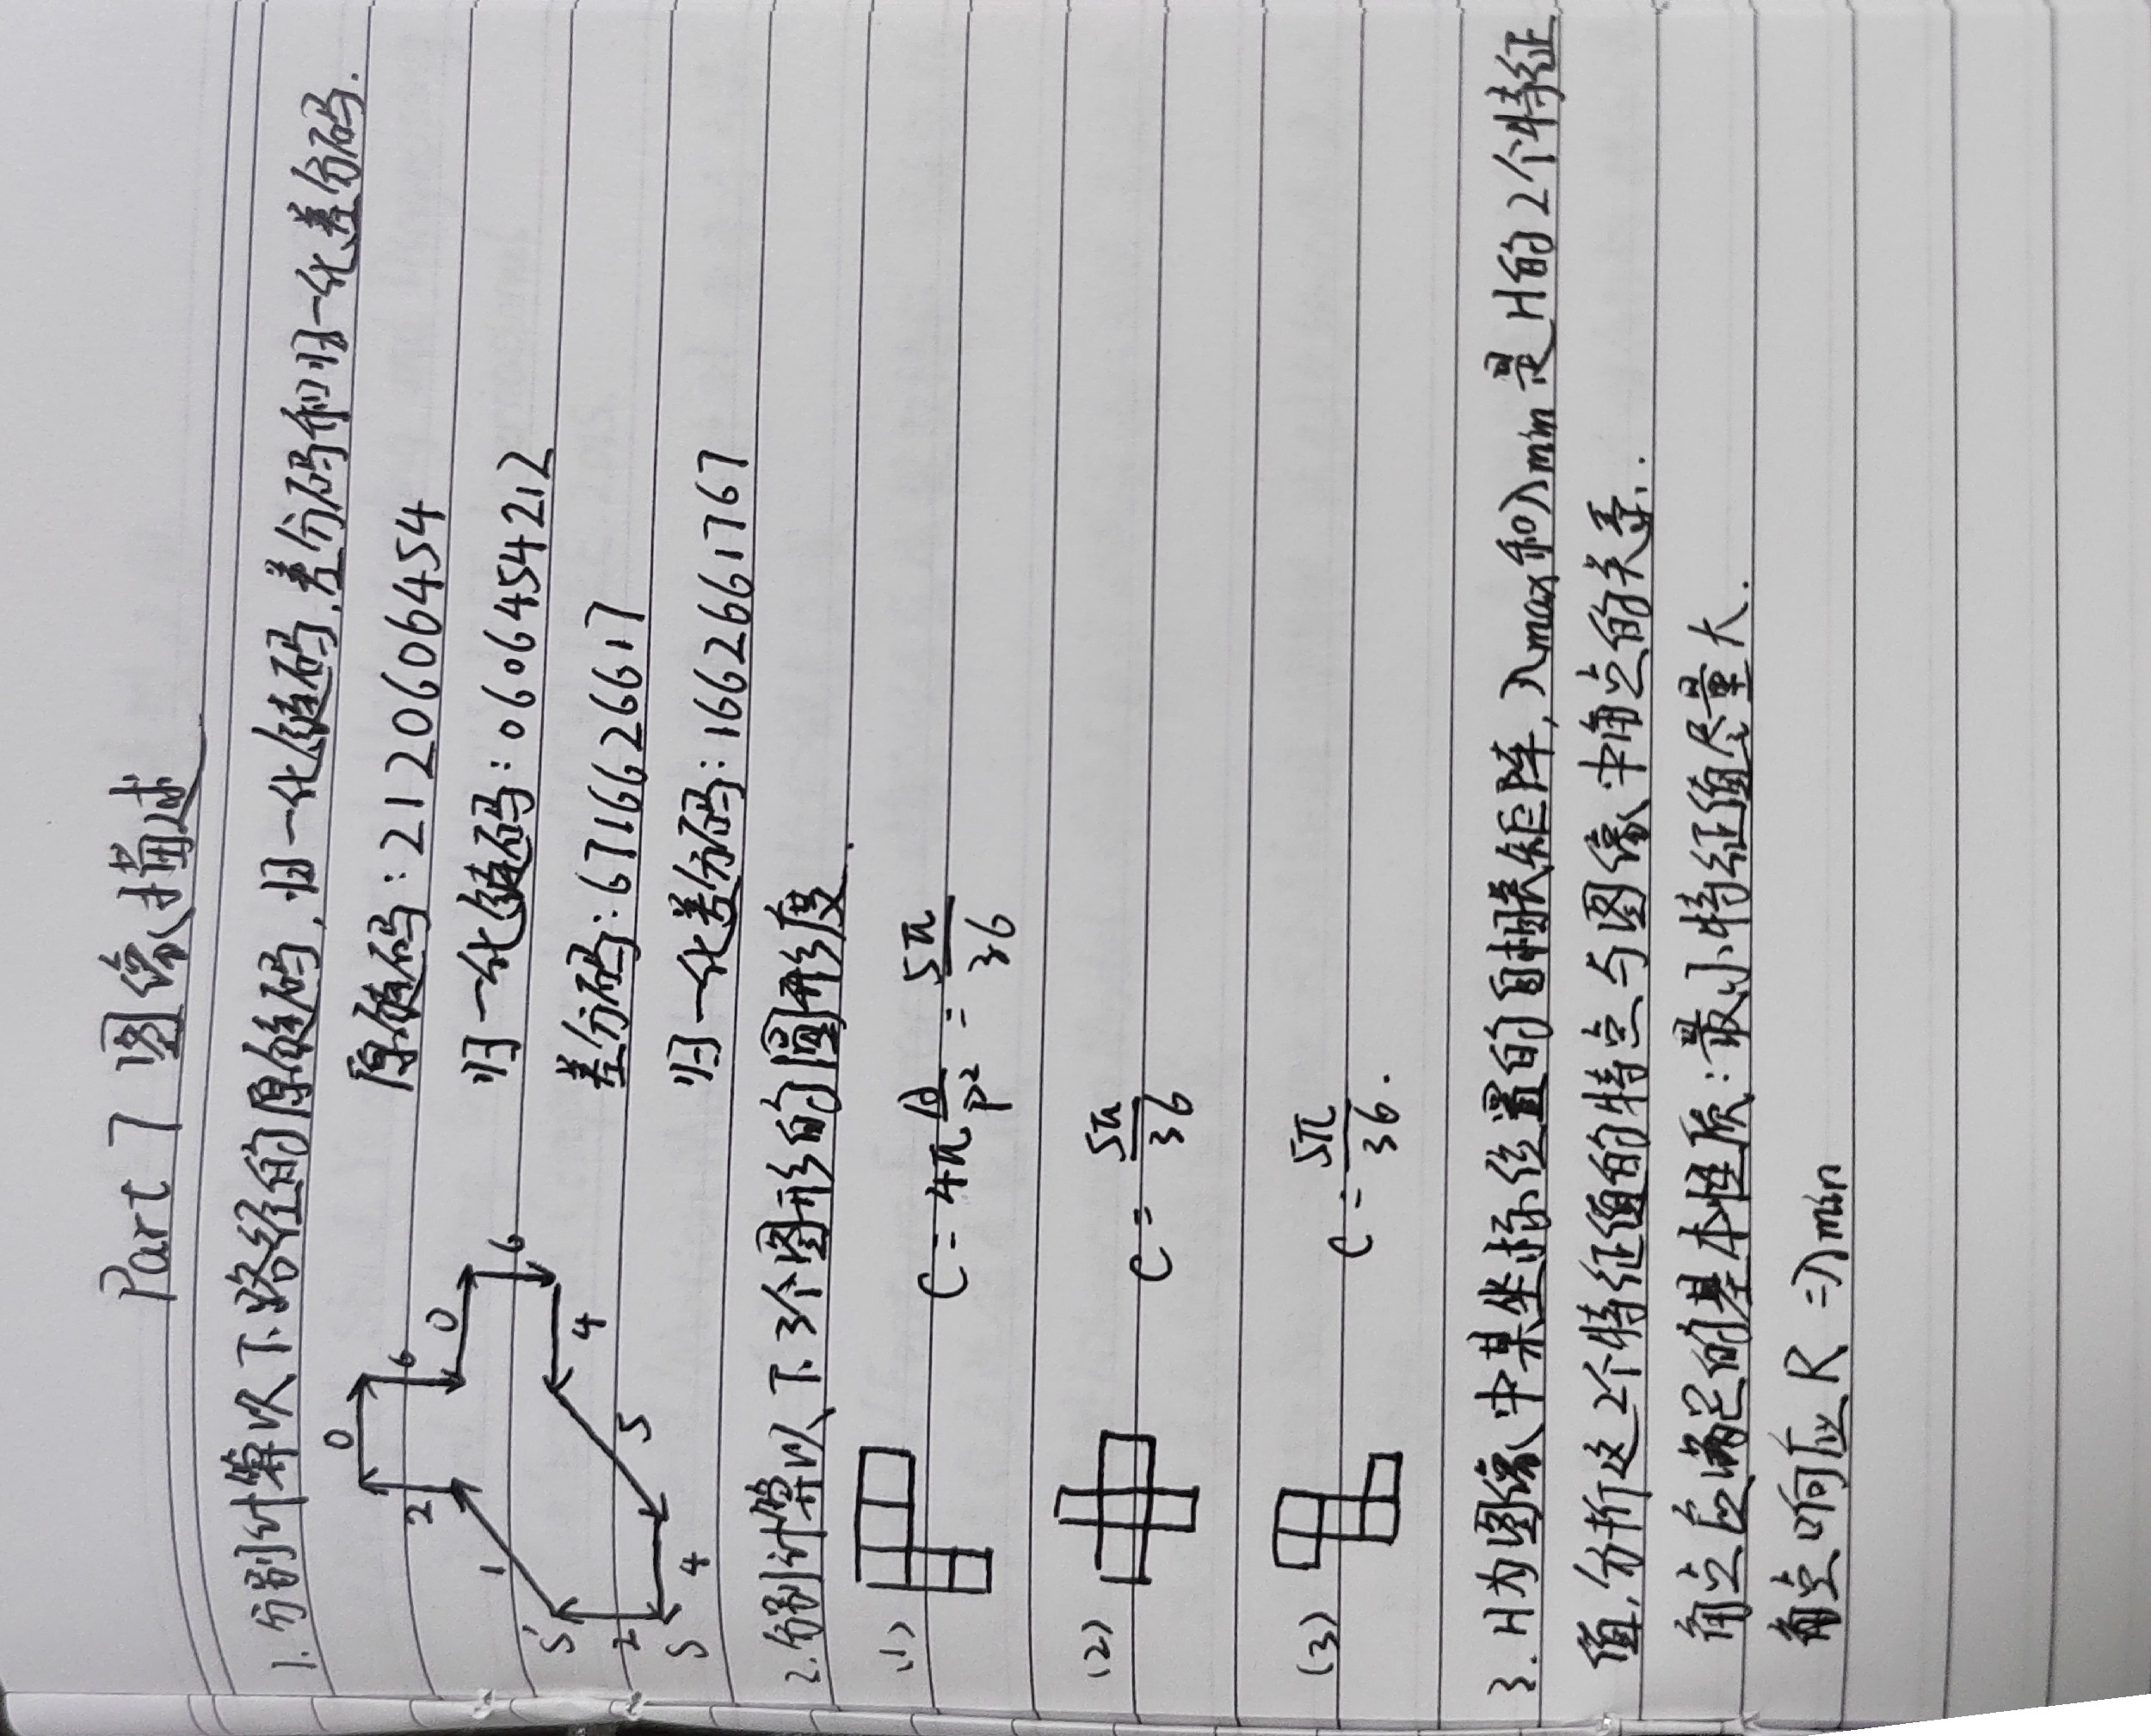 Part 7 图像描述
1. 分别计算以下路径的原链码, 归一化链码, 差分码和归一化差分码.
0
2
6
0
1
6
S'
4
2
5
S
4
原链码: 2120606454
归一化链码: 0606454212
差分码: 6716626617
归一化差分码: 1662661767
2. 分别计算以下3个图形的圆形度.
(1) C = 4π A/P² = 5π/36
(2) C = 5π/36
(3) C = 5π/36.
3. H为图像中某坐标位置的自相关矩阵, λmax和λmin是H的2个特征
值, 分析这2个特征值的特点与图像中角点的关系.
角点应满足的基本性质: 最小特征值尽量大.
角点响应 R = λmin